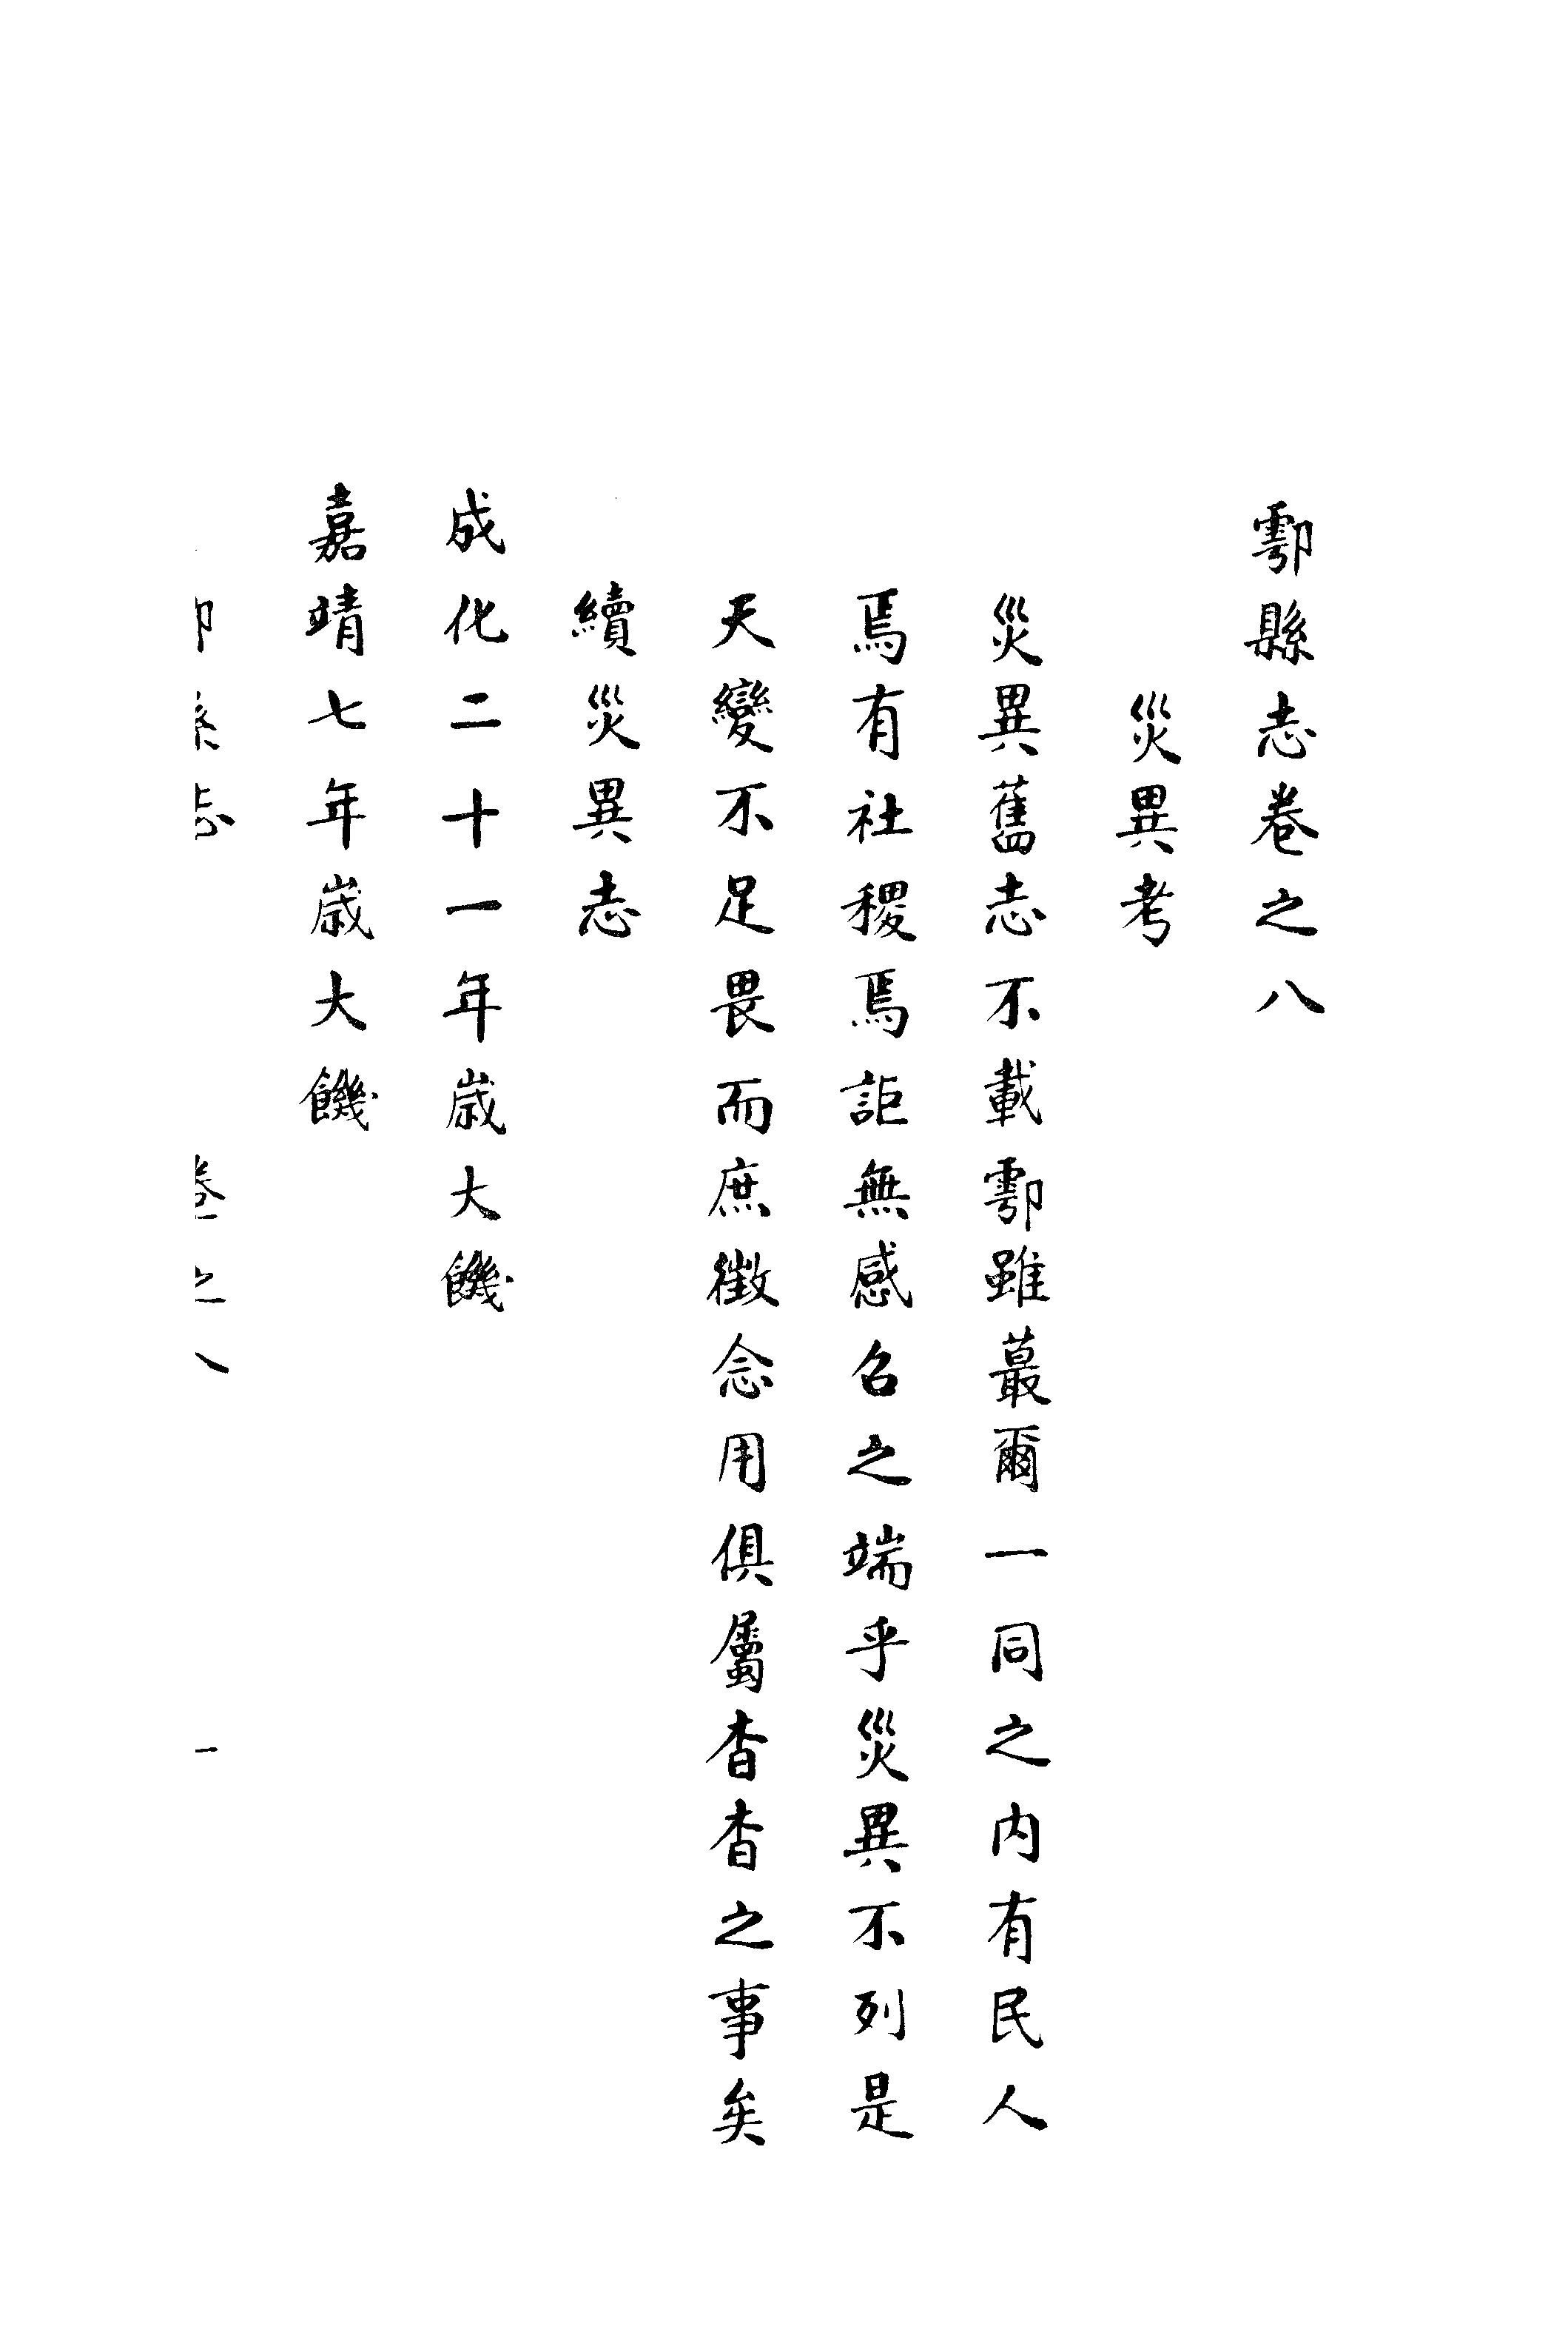 鄠縣志卷之八
災異考
災異舊志不載鄠雖蕞爾一同之内有民人
焉有社稷焉詎無感召之端乎災異不列是
天變不足畏而庶徵念用俱屬杳杳之事矣
續災異志
成化二十一年歲大饑
嘉靖七年歲大饑
卷之八 一